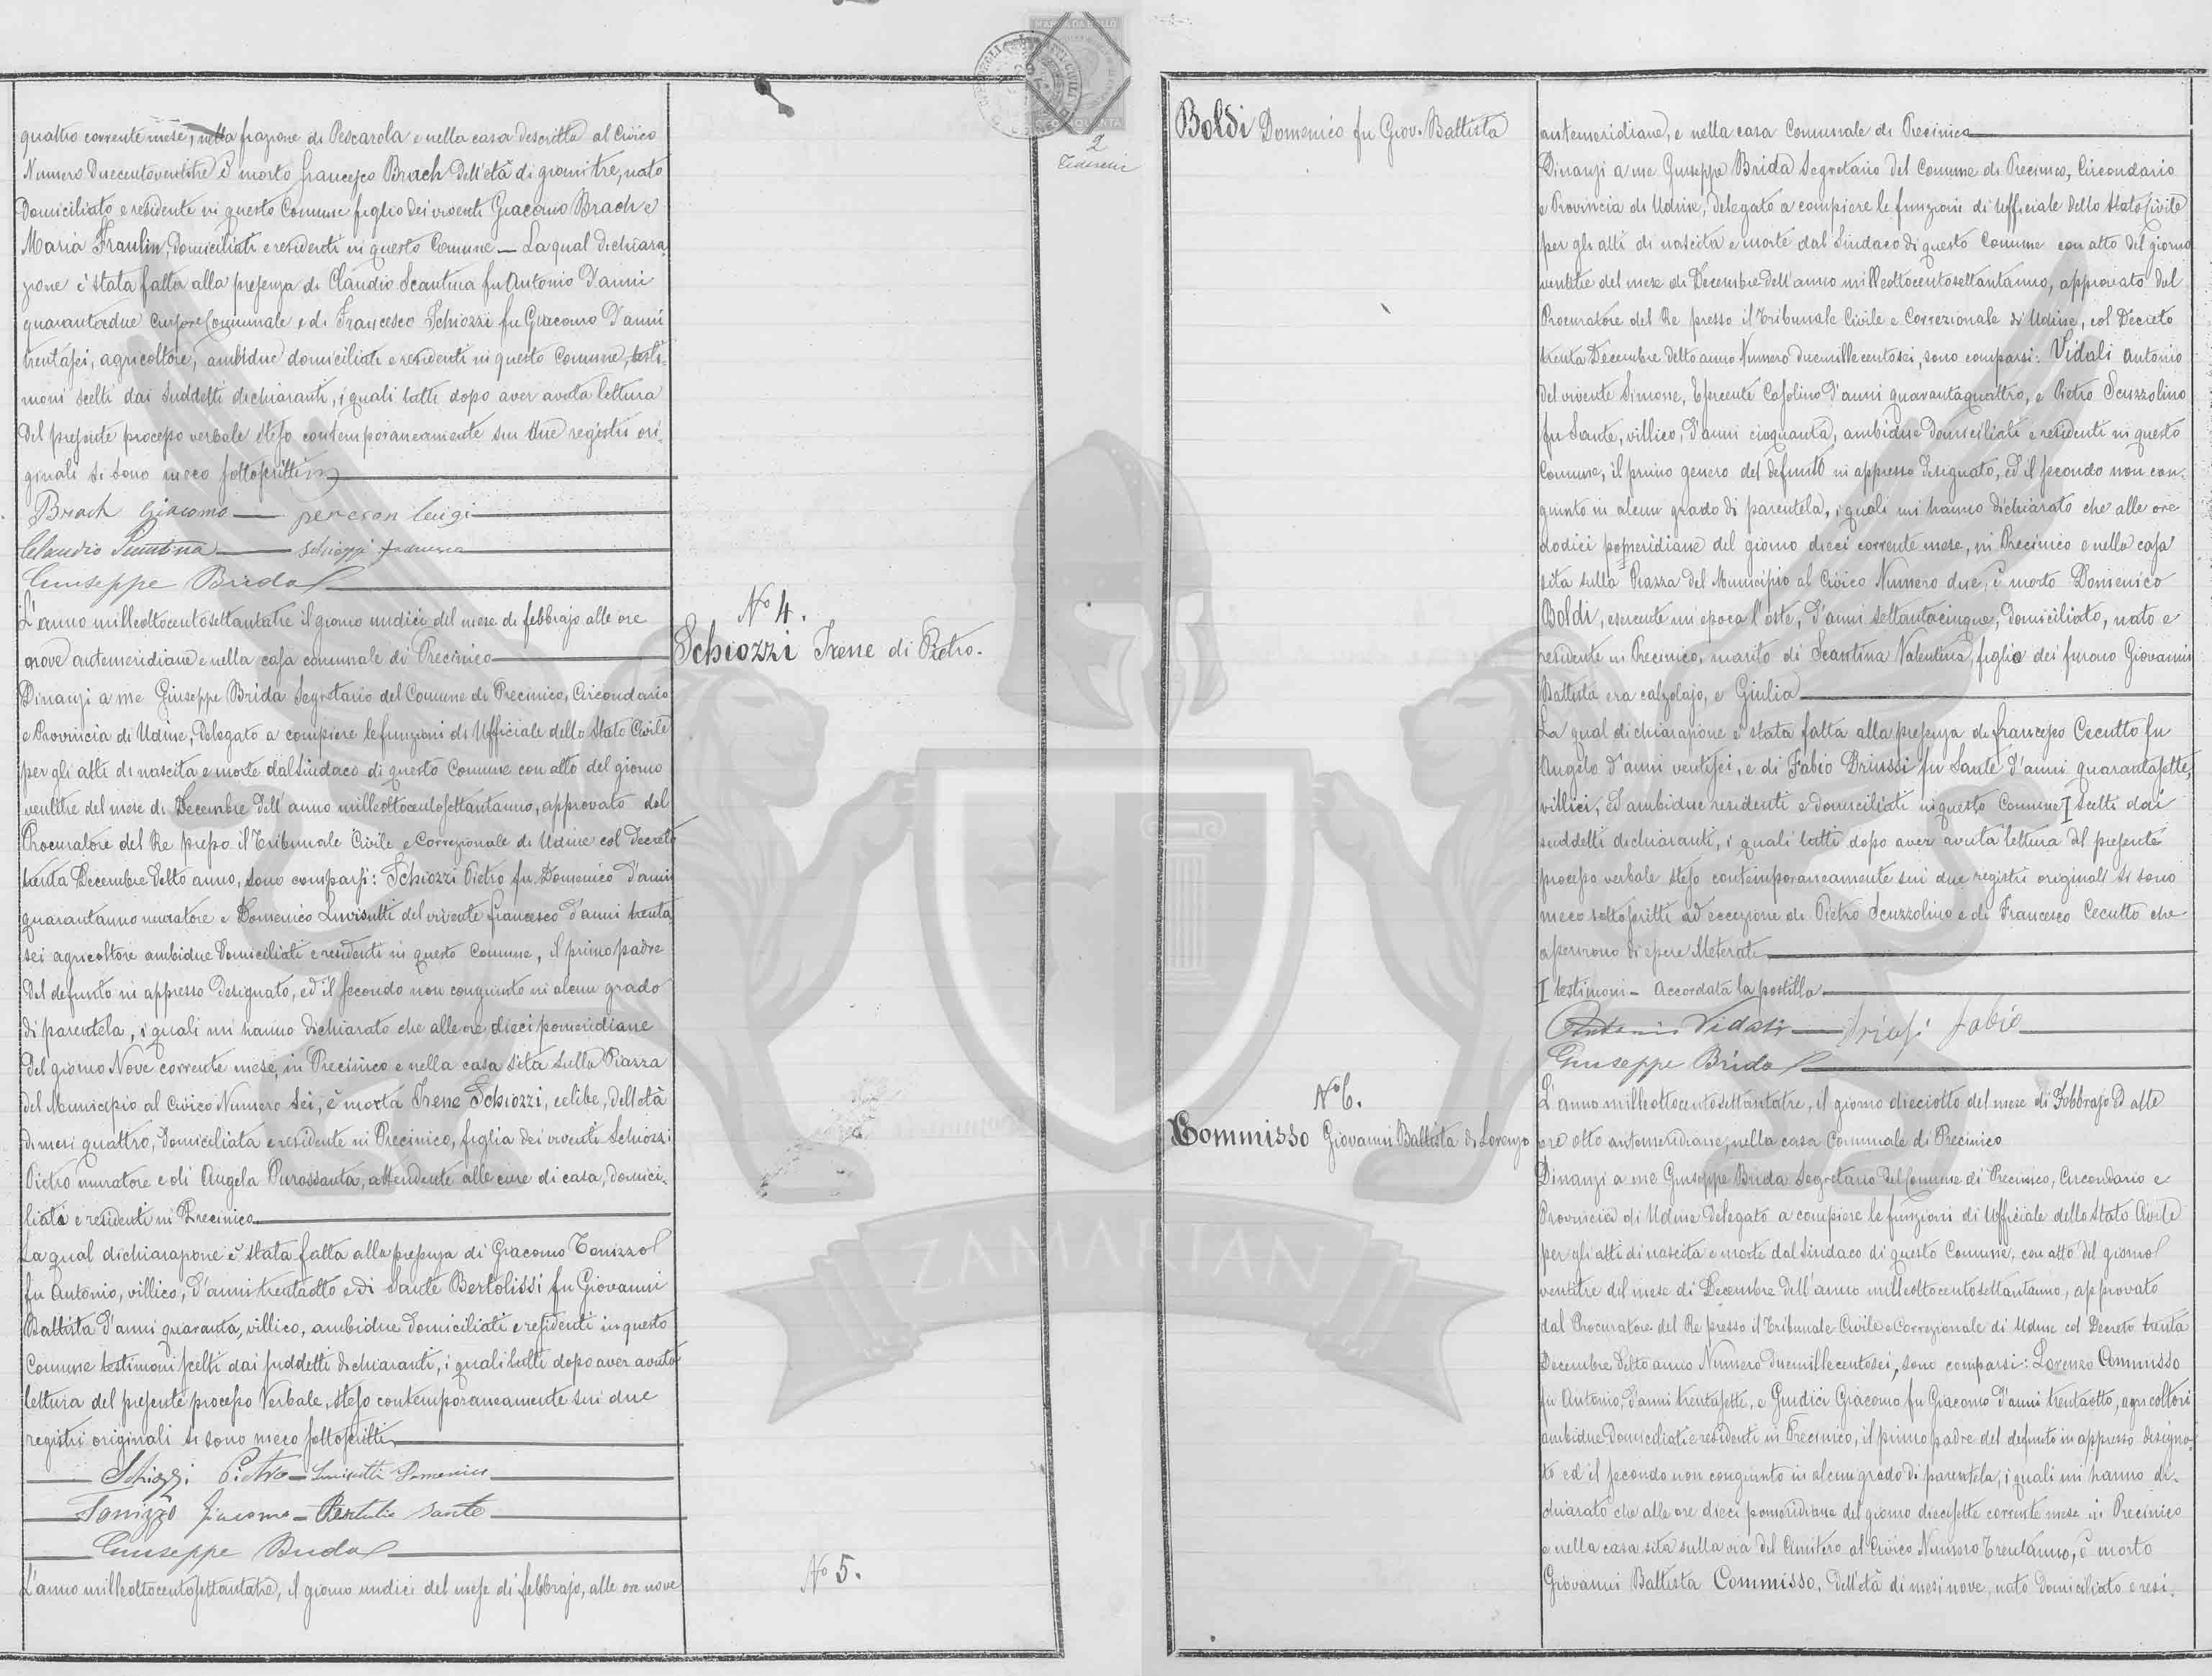 quattro corrente mese, nella frazione di Pescarola e nella casa descritta al Civico
Numero Duecentoventitre è morto Francesco Brach dell'età di giorni tre, nato
Domiciliato e residente in questo Comune figlio dei viventi Giacomo Brach e
Maria Fraulin, Domiciliati e residenti in questo Comune — La qual dichiara-
zione è stata fatta alla presenza di Claudio Scantina fu Antonio d'anni
quarantadue Cursore Comunale e di Francesco Schiozzi fu Giacomo d'anni
trentasei, agricoltore, ambidue domiciliati e residenti in questo Comune, testi-
moni scelti dai suddetti dichiaranti, i quali tutti dopo aver avuta lettura
del presente processo verbale steso contemporaneamente sui due registri ori-
ginali si sono meco sottoscritti
Brach Giacomo — percson luigi
Claudio — Schiozzi
Giuseppe Brida
L'anno milleottocentosettantatre il giorno undici del mese di febbrajo alle ore
nove antemeridiane e nella casa comunale di Precinico
Dinanzi a me Giuseppe Brida Segretario del Comune di Precinico, Circondario
e Provincia di Udine, Delegato a compiere le funzioni di Ufficiale dello Stato Civile
per gli atti di nascita e morte dal Sindaco di questo Comune con atto del giorno
ventitre del mese di Decembre dell'anno milleottocentosettantauno, approvato dal
Procuratore del Re presso il Tribunale Civile e Correzionale di Udine col Decreto
trenta Decembre detto anno, sono comparsi: Schiozzi Pietro fu Domenico d'anni
quarantauno muratore e Domenico Luvisutti del vivente Francesco d'anni trenta-
sei agricoltore ambidue Domiciliati e residenti in questo Comune, il primo padre
del defunto in appresso designato, ed il secondo non congiunto in alcun grado
di parentela, i quali mi hanno dichiarato che alle ore dieci pomeridiane
del giorno Nove corrente mese, in Precinico e nella casa sita sulla Piazza
del Municipio al Civico Numero sei, è morta Irene Schiozzi, celibe, dell'età
di mesi quattro, Domiciliata e residente in Precinico, figlia dei viventi Schiozzi
Pietro muratore e di Angela Purassanta, attendente alle cure di casa, domici-
liati e residenti in Precinico
La qual dichiarazione è stata fatta alla presenza di Giacomo Tonizzo
fu Antonio, villico, d'anni trentaotto e di Sante Bertolissi fu Giovanni
Battista d'anni quaranta, villico, ambidue Domiciliati e residenti in questo
Comune testimoni scelti dai suddetti dichiaranti, i quali tutti dopo aver avuta
lettura del presente processo Verbale, steso contemporaneamente sui due
registri originali si sono meco sottoscritti
Schiozzi Pietro — Luvisutti Domenico
Tonizzo Giacomo — Sante
Giuseppe Brida
L'anno milleottocentosettantatre, il giorno undici del mese di febbrajo, alle ore nove
No 4.
Schiozzi Irene di Pietro.
No 5.
2
MARCA DA BOLLO
ZAMARIAN
Boldi Domenico fu Giov. Battista
No 6.
Commisso Giovanni Battista di Lorenzo
antemeridiane, e nella casa Comunale di Precinico
Dinanzi a me Giuseppe Brida Segretario del Comune di Precinico, Circondario
e Provincia di Udine, delegato a compiere le funzioni di Ufficiale dello Stato Civile
per gli atti di nascita e morte dal Sindaco di questo Comune con atto del giorno
ventitre del mese di Decembre dell'anno milleottocentosettantauno, approvato dal
Procuratore del Re presso il Tribunale Civile e Correzionale di Udine, col Decreto
trenta Decembre detto anno Numero duemillecentosei, sono comparsi: Vidali Antonio
del vivente Simone, Esercente Casolino d'anni quarantaquattro, e Pietro Scuzzolino
fu Sante, villico, d'anni cinquanta, ambidue Domiciliati e residenti in questo
Comune, il primo genero del defunto in appresso designato, ed il secondo non con-
giunto in alcun grado di parentela, i quali mi hanno dichiarato che alle ore
dodici pomeridiane del giorno dieci corrente mese, in Precinico e nella casa
sita sulla Piazza del Municipio al Civico Numero due, è morto Domenico
Boldi, esercente in epoca l'oste, d'anni settantacinque, Domiciliato, nato e
residente in Precinico, marito di Scantina Valentina, figlio dei furono Giovanni
Battista era calzolajo, e Giulia
La qual dichiarazione è stata fatta alla presenza di Francesco Cecutto fu
Angelo d'anni ventisei, e di Fabio Driussi fu Sante d'anni quarantasette,
villici, ed ambidue residenti e domiciliati in questo Comune I scelti dai
suddetti dichiaranti, i quali tutti dopo aver avuta lettura del presente
processo verbale steso contemporaneamente sui due registri originali si sono
meco sottoscritti ad eccezione di Pietro Scuzzolino e di Francesco Cecutto che
asserirono di essere illeterati
I testimoni — Accordata la postilla
Antonio Vidali — Fabio
Giuseppe Brida
L'anno milleottocentosettantatre, il giorno dieciotto del mese di Febbrajo ed alle
ore otto antemeridiane, nella casa Comunale di Precinico
Dinanzi a me Giuseppe Brida Segretario del Comune di Precinico, Circondario e
Provincia di Udine Delegato a compiere le funzioni di Ufficiale dello Stato Civile
per gli atti di nascita e morte dal Sindaco di questo Comune, con atto del giorno
ventitre del mese di Decembre dell'anno milleottocentosettantauno, approvato
dal Procuratore del Re presso il Tribunale Civile e Correzionale di Udine col Decreto trenta
Decembre detto anno Numero duemillecentosei, sono comparsi: Lorenzo Commisso
fu Antonio, d'anni trentasette, e Giudici Giacomo fu Giacomo d'anni trentaotto, agricoltori
ambidue Domiciliati e residenti in Precinico, il primo padre del defunto in appresso designa-
to ed il secondo non congiunto in alcun grado di parentela, i quali mi hanno di-
chiarato che alle ore dieci pomeridiane del giorno diecisette corrente mese in Precinico
e nella casa sita sulla via del Cimitero al Civico Numero Trentauno, è morto
Giovanni Battista Commisso, dell'età di mesi nove, nato Domiciliato e resi-